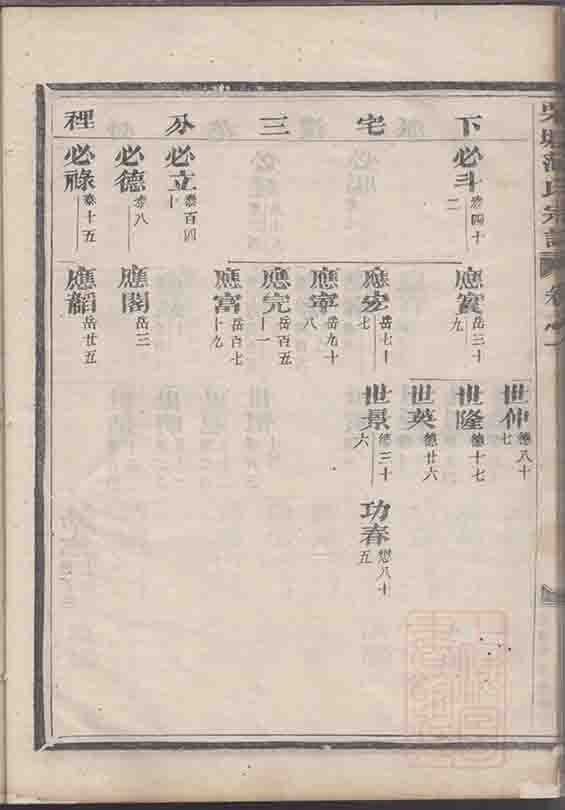 氏宗譜
下宅三分裡
必斗 泰四十二
必立 泰百四十
必德 泰八
必祿 泰十五
應實 岳三十九
應宏 岳七十七
應寧 岳九十八
應完 岳百五十一
應富 岳百七十九
應閣 岳三
應韜 岳廿五
世仲 德八十七
世隆 德十七
世英 德廿六
世景 德三十六
功春 懋八十五